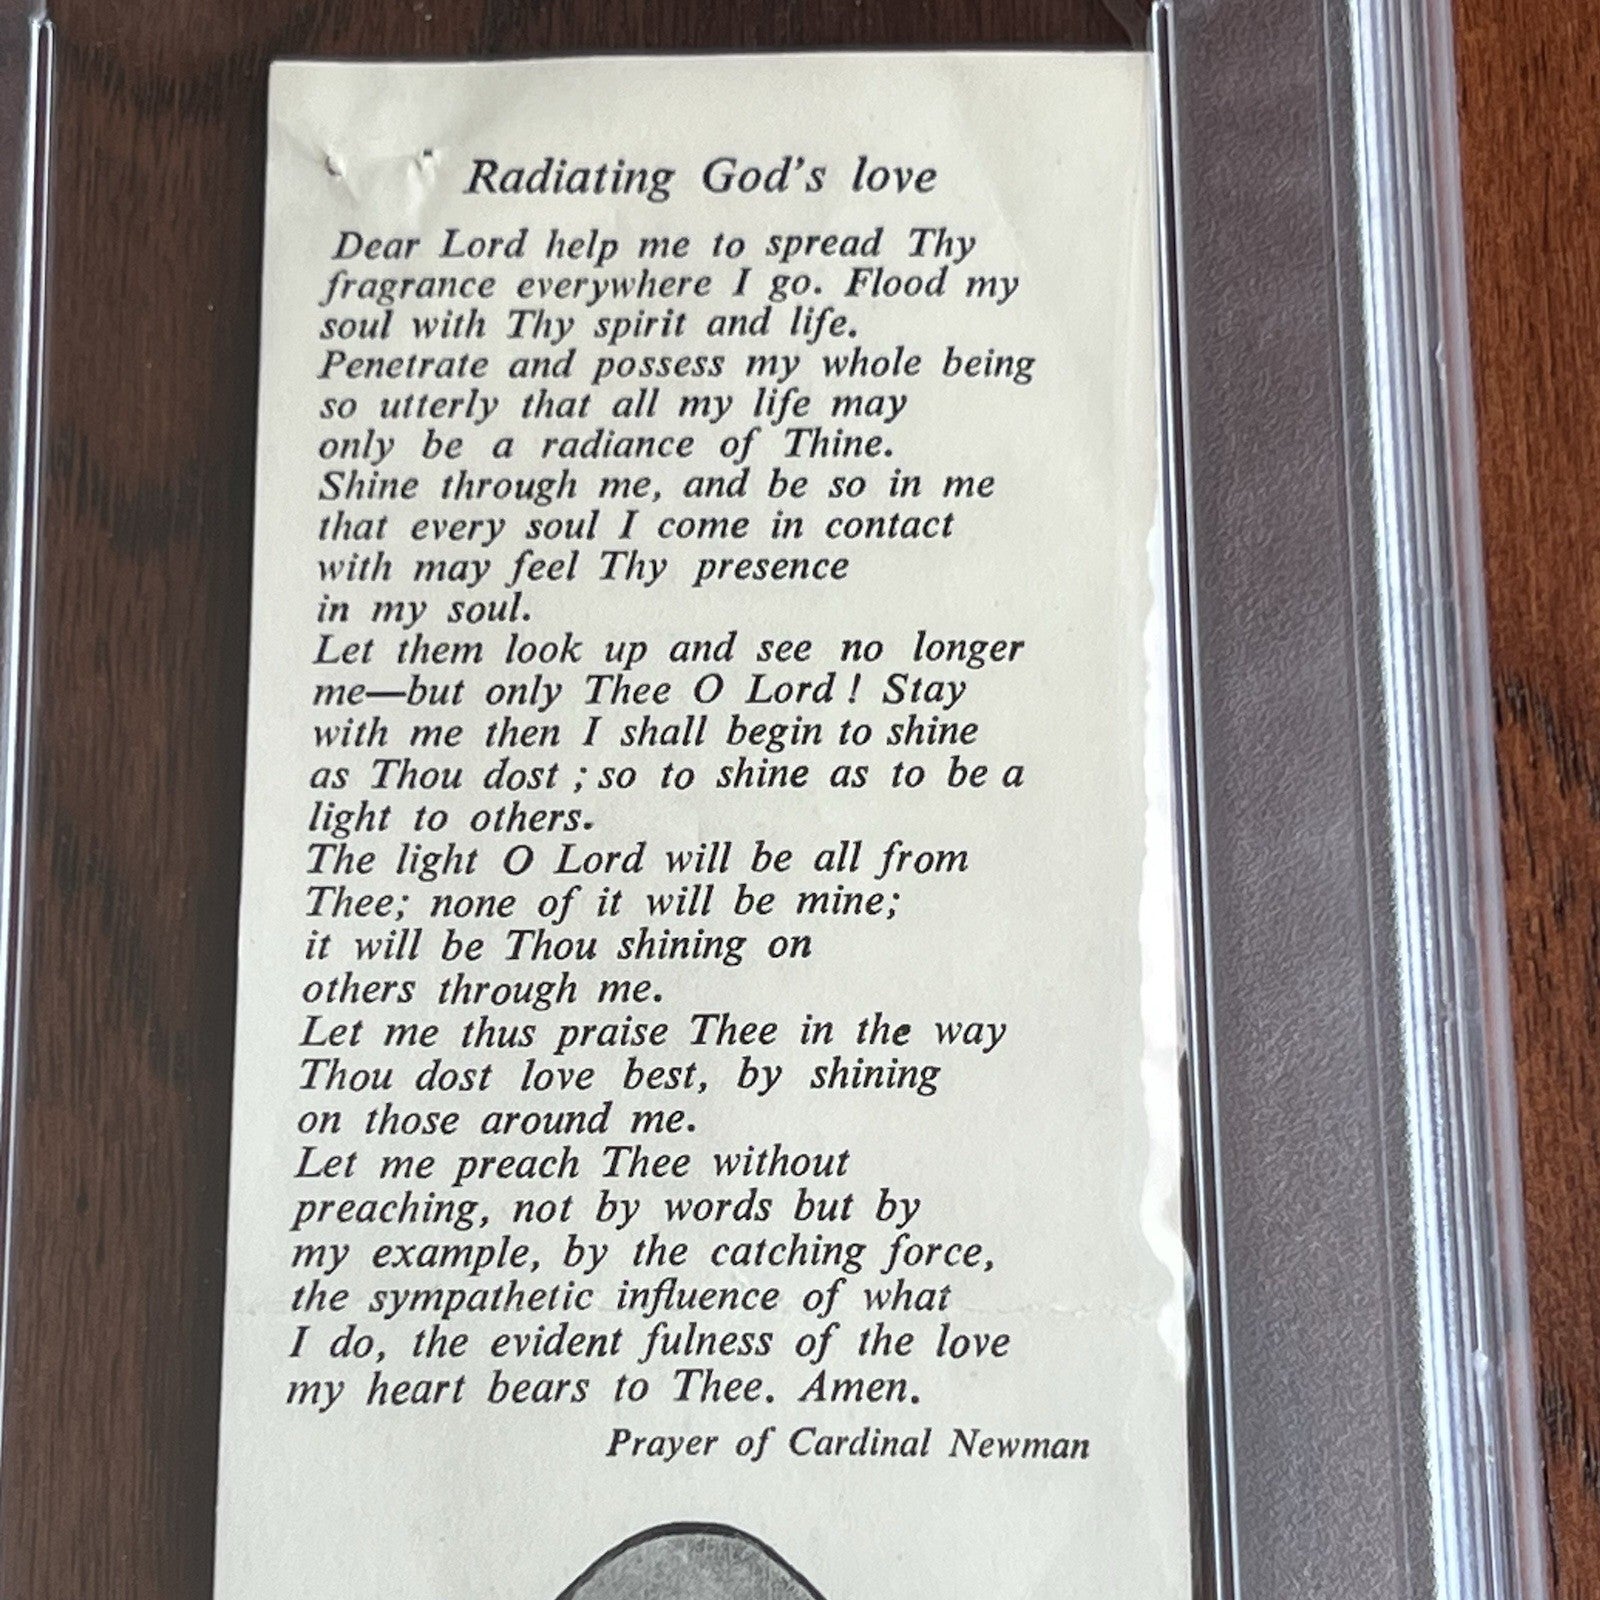 Radiating God's love
Dear Lord help me to spread Thy
fragrance everywhere I go. Flood my
soul with Thy spirit and life.
Penetrate and possess my whole being
so utterly that all my life may
only be a radiance of Thine.
Shine through me, and be so in me
that every soul I come in contact
with may feel Thy presence
in my soul.
Let them look up and see no longer
me—but only Thee O Lord ! Stay
with me then I shall begin to shine
as Thou dost ; so to shine as to be a
light to others.
The light O Lord will be all from
Thee; none of it will be mine;
it will be Thou shining on
others through me.
Let me thus praise Thee in the way
Thou dost love best, by shining
on those around me.
Let me preach Thee without
preaching, not by words but by
my example, by the catching force,
the sympathetic influence of what
I do, the evident fulness of the love
my heart bears to Thee. Amen.
Prayer of Cardinal Newman